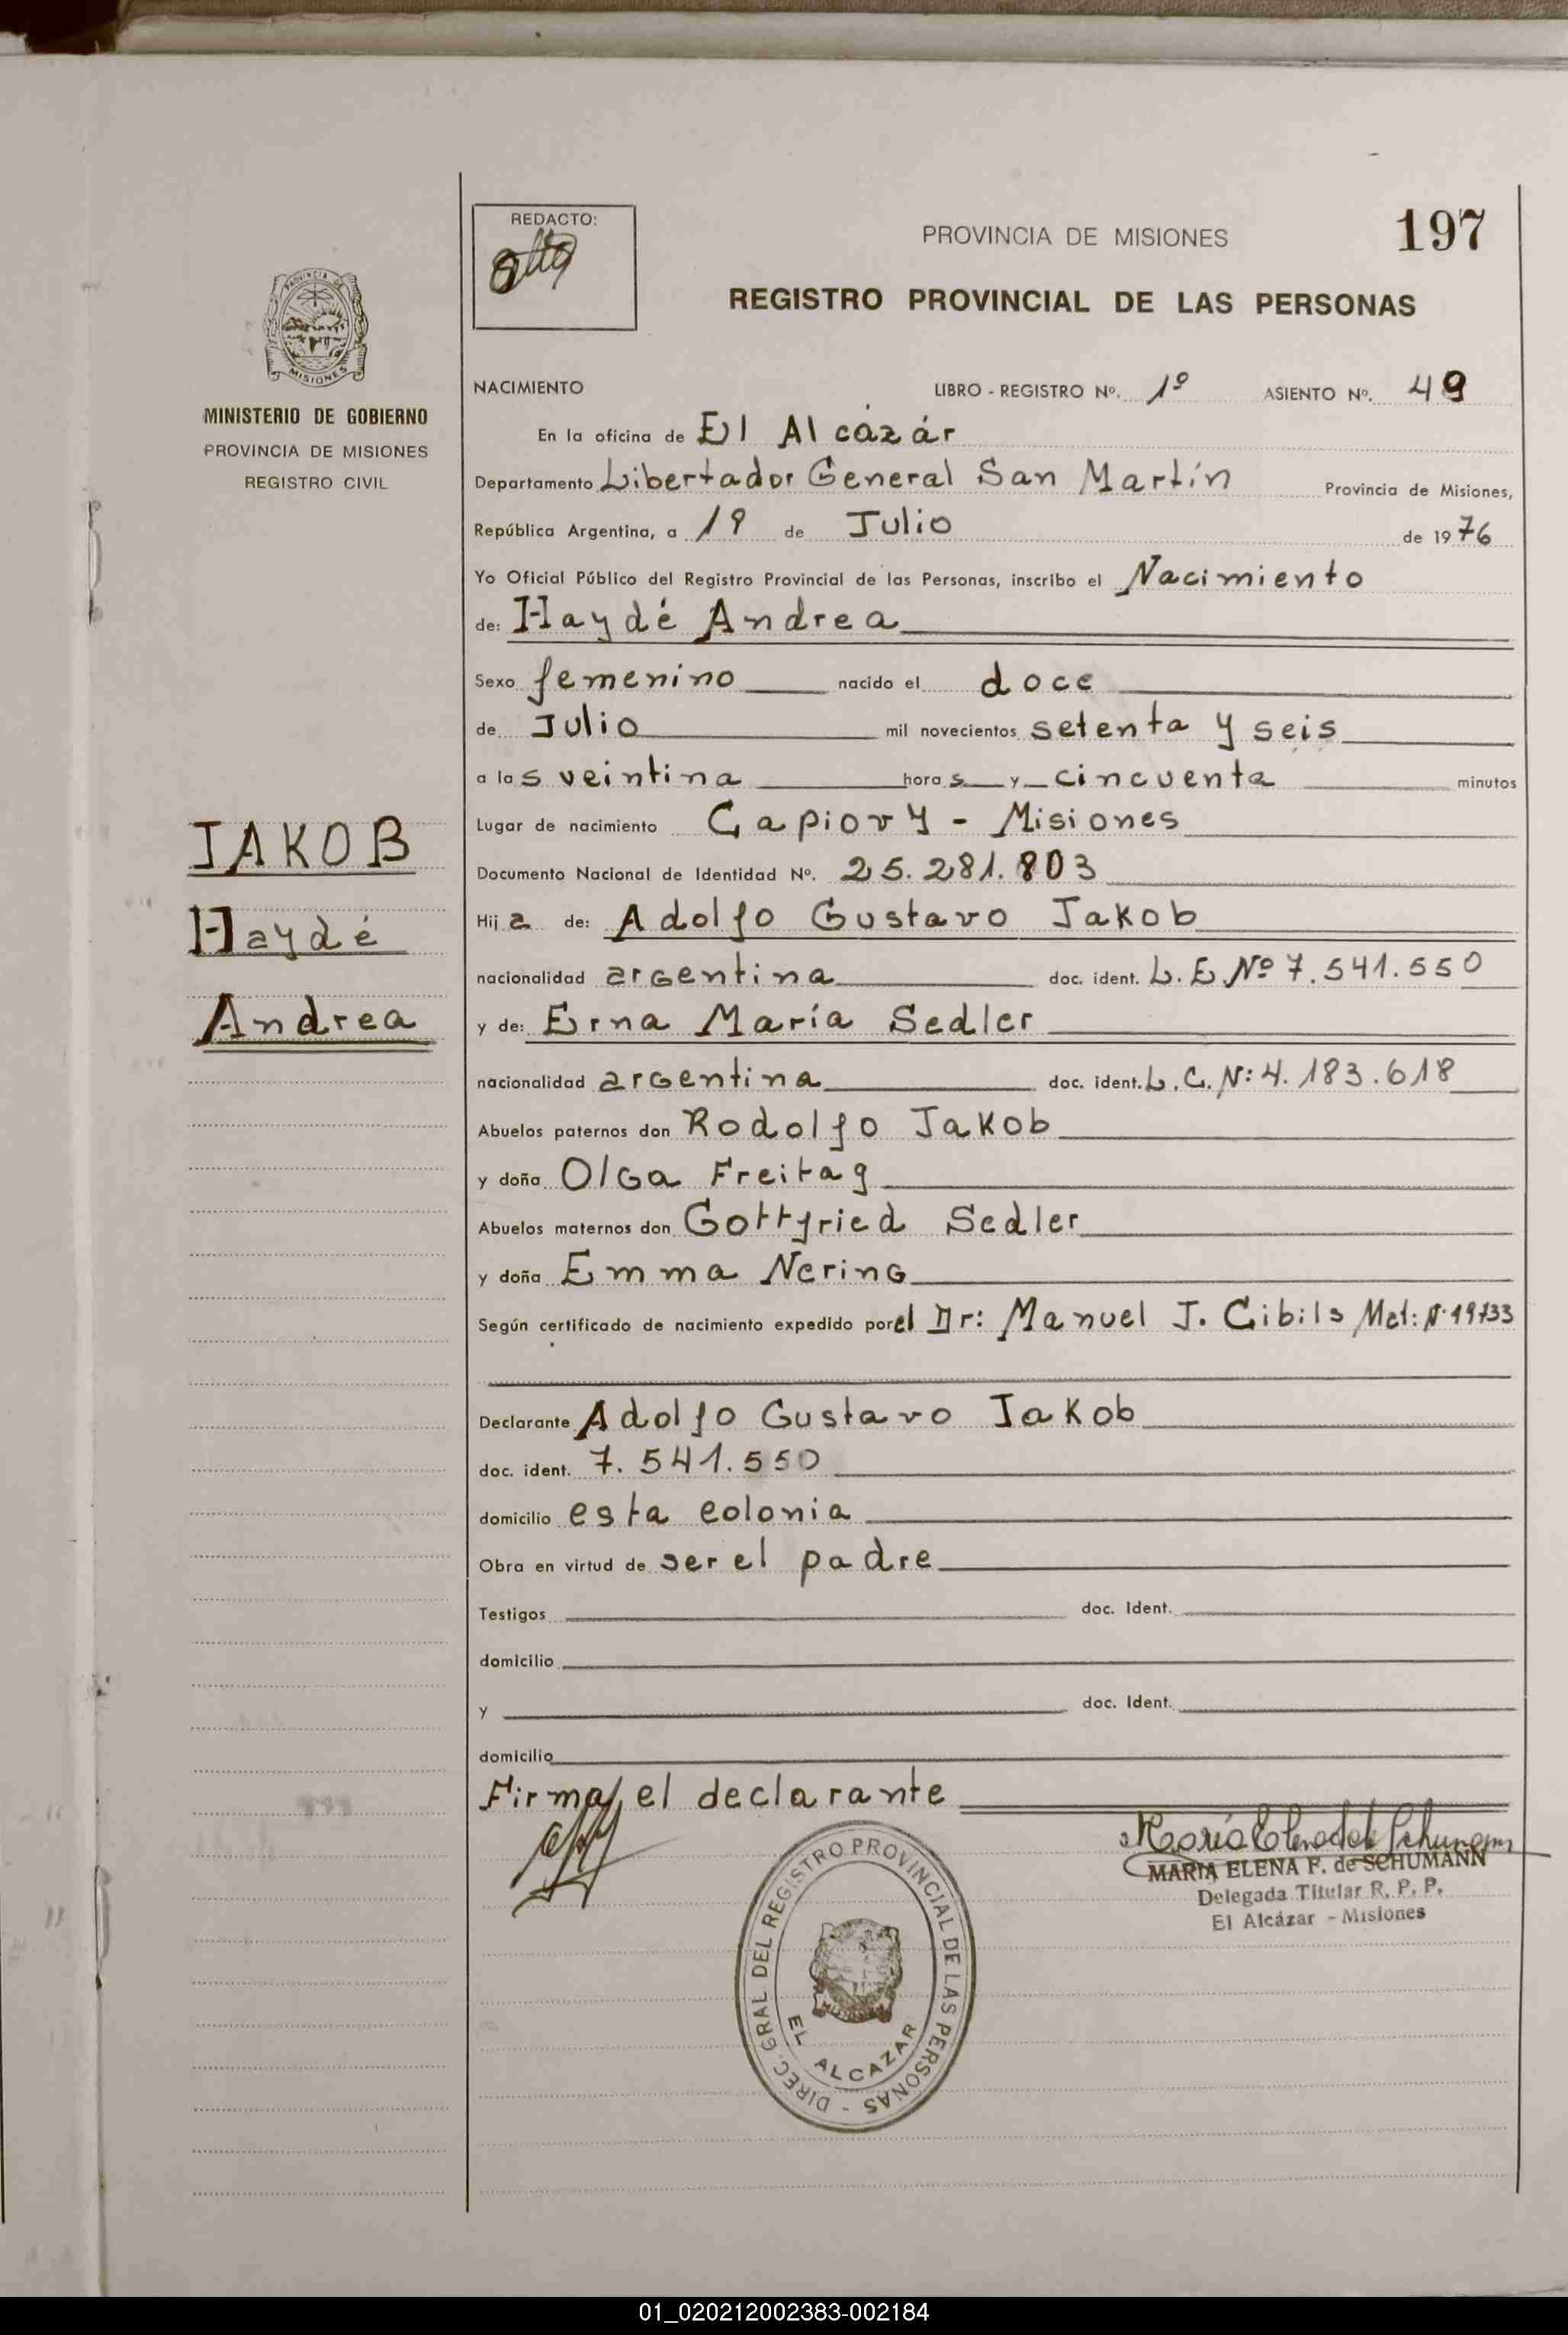 REDACTO:
PROVINCIA DE MISIONES
197
REGISTRO PROVINCIAL DE LAS PERSONAS
PROVINCIA DE
MISIONES
MINISTERIO DE GOBIERNO
PROVINCIA DE MISIONES
REGISTRO CIVIL
NACIMIENTO LIBRO - REGISTRO Nº. 1º ASIENTO Nº. 49
En la oficina de El Alcázár
Departamento Libertador General San Martín Provincia de Misiones,
República Argentina, a 19 de Julio de 1976
Yo Oficial Público del Registro Provincial de las Personas, inscribo el Nacimiento
de: Haydé Andrea
Sexo femenino nacido el doce
de Julio mil novecientos setenta y seis
a las veintina horas y cincuenta minutos
Lugar de nacimiento Capiovy - Misiones
Documento Nacional de Identidad Nº. 25.281.803
Hija de: Adolfo Gustavo Jakob
nacionalidad argentina doc. ident. L. E. Nº 7.541.550
y de: Erna María Sedler
nacionalidad argentina doc. ident. L. C. N: 4.183.618
Abuelos paternos don Rodolfo Jakob
y doña Olga Freitag
Abuelos maternos don Gottfried Sedler
y doña Emma Nering
Según certificado de nacimiento expedido por el Dr: Manuel J. Cibils Mat: N·19733
Declarante Adolfo Gustavo Jakob
doc. ident. 7.541.550
domicilio esta colonia
Obra en virtud de ser el padre
Testigos doc. Ident.
domicilio
y doc. Ident.
domicilio
Firma, el declarante
JAKOB
Haydé
Andrea
MARIA ELENA F. de SCHUMANN
Delegada Titular R. P. P.
El Alcázar - Misiones
DIREC. GRAL DEL REGISTRO PROVINCIAL DE LAS PERSONAS -
MISIONES
EL ALCAZAR
01_020212002383-002184